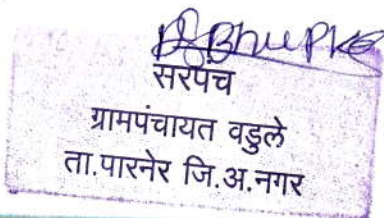 सरपंच
ग्रामपंचायत वडुले
ता.पारनेर जि.अ.नगर